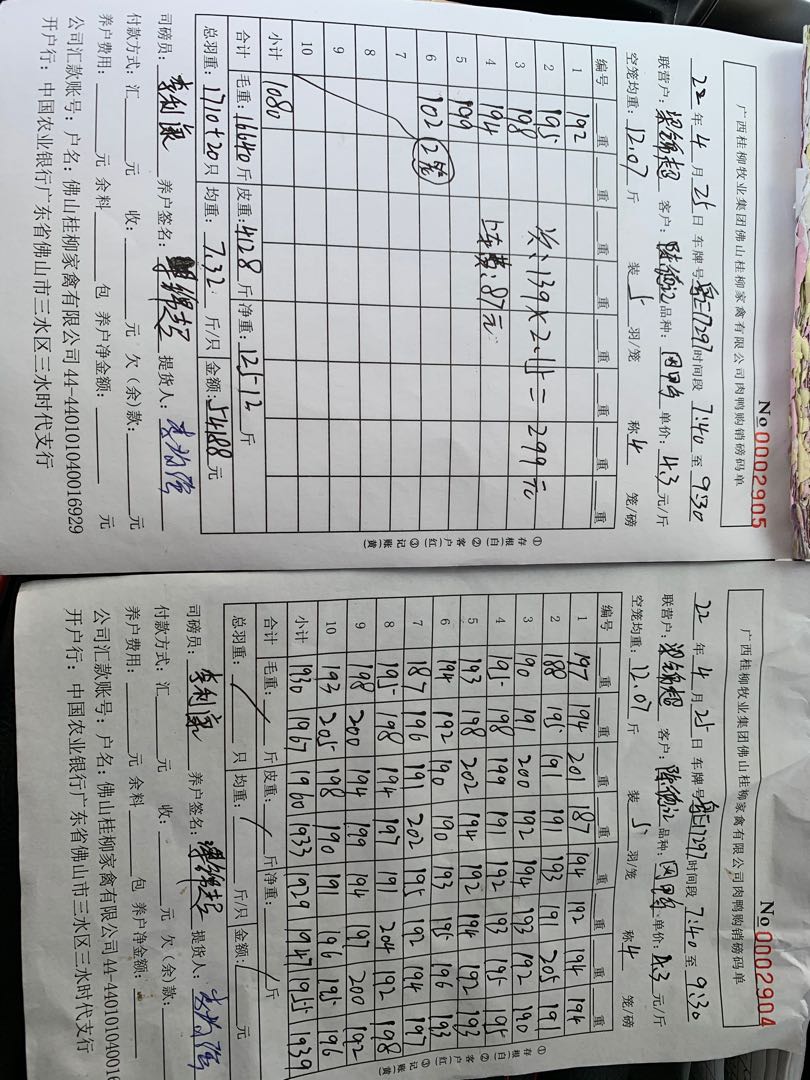 № 0002905
广西桂柳牧业集团佛山桂柳家禽有限公司肉鸭购销磅码单
22年4月25日 车牌号 17297 时间段 7:40 至 9:30
联营户: 梁锦超 客户: 陈德江 品种: 单价: 4.3 元/斤
空笼均重: 12.07 斤 装 5 羽/笼 称 4 笼/磅
编号 重 重 重 重 重 重 重 重
1 192
2 195
3 198
4 194
5 199
6 102 2笼
7
8
9
10
次: 139×2.15=299元
上车费: 87元
小计 1080
合计 毛重: 16640 斤 皮重: 4128 斤 净重: 12512 斤
总羽重: 1710+20 只 均重: 7.32 斤/只 金额: 54188 元
司磅员: 李利豪 养户签名: 梁锦超 提货人:
付款方式: 汇 元 收: 元 欠(余)款: 元
养户费用: 元 余料 包 养户净金额: 元
公司汇款账号: 户名: 佛山桂柳家禽有限公司 44-440101040016929
开户行: 中国农业银行广东省佛山市三水区三水时代支行
①存根(白) ②客户(红) ③记账(黄)
№ 0002904
广西桂柳牧业集团佛山桂柳家禽有限公司肉鸭购销磅码单
22年4月25日 车牌号 17297 时间段 7:40 至 9:30
联营户: 梁锦超 客户: 陈德江 品种: 单价: 4.3 元/斤
空笼均重: 12.07 斤 装 5 羽/笼 称 4 笼/磅
编号 重 重 重 重 重 重 重 重
1 197 194 201 187 194 192 194 194
2 188 195 191 191 193 191 205 191
3 190 191 200 192 194 193 192 190
4 195 198 199 191 192 193 195 194
5 193 198 202 194 192 194 192 193
6 194 192 190 190 193 195 196 193
7 187 196 191 202 195 192 194 197
8 195 198 194 197 191 204 192 198
9 198 200 194 199 194 197 200 192
10 193 205 198 190 191 196 195 196
小计 1930 1967 1960 1933 1929 1947 1955 1939
合计 毛重: 斤 皮重: 斤 净重: 斤
总羽重: 只 均重: 斤/只 金额: 元
司磅员: 李利豪 养户签名: 梁锦超 提货人:
付款方式: 汇 元 收: 元 欠(余)款:
养户费用: 元 余料 包 养户净金额:
公司汇款账号: 户名: 佛山桂柳家禽有限公司 44-440101040016
开户行: 中国农业银行广东省佛山市三水区三水时代支行
①存根(白) ②客户(红) ③记账(黄)